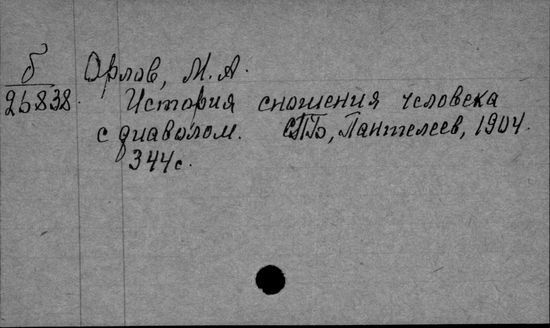 б Орлов, М. А.
26838. История сношения человека
с диаволом. СПб, Пантелеев, 1904.
344 с.